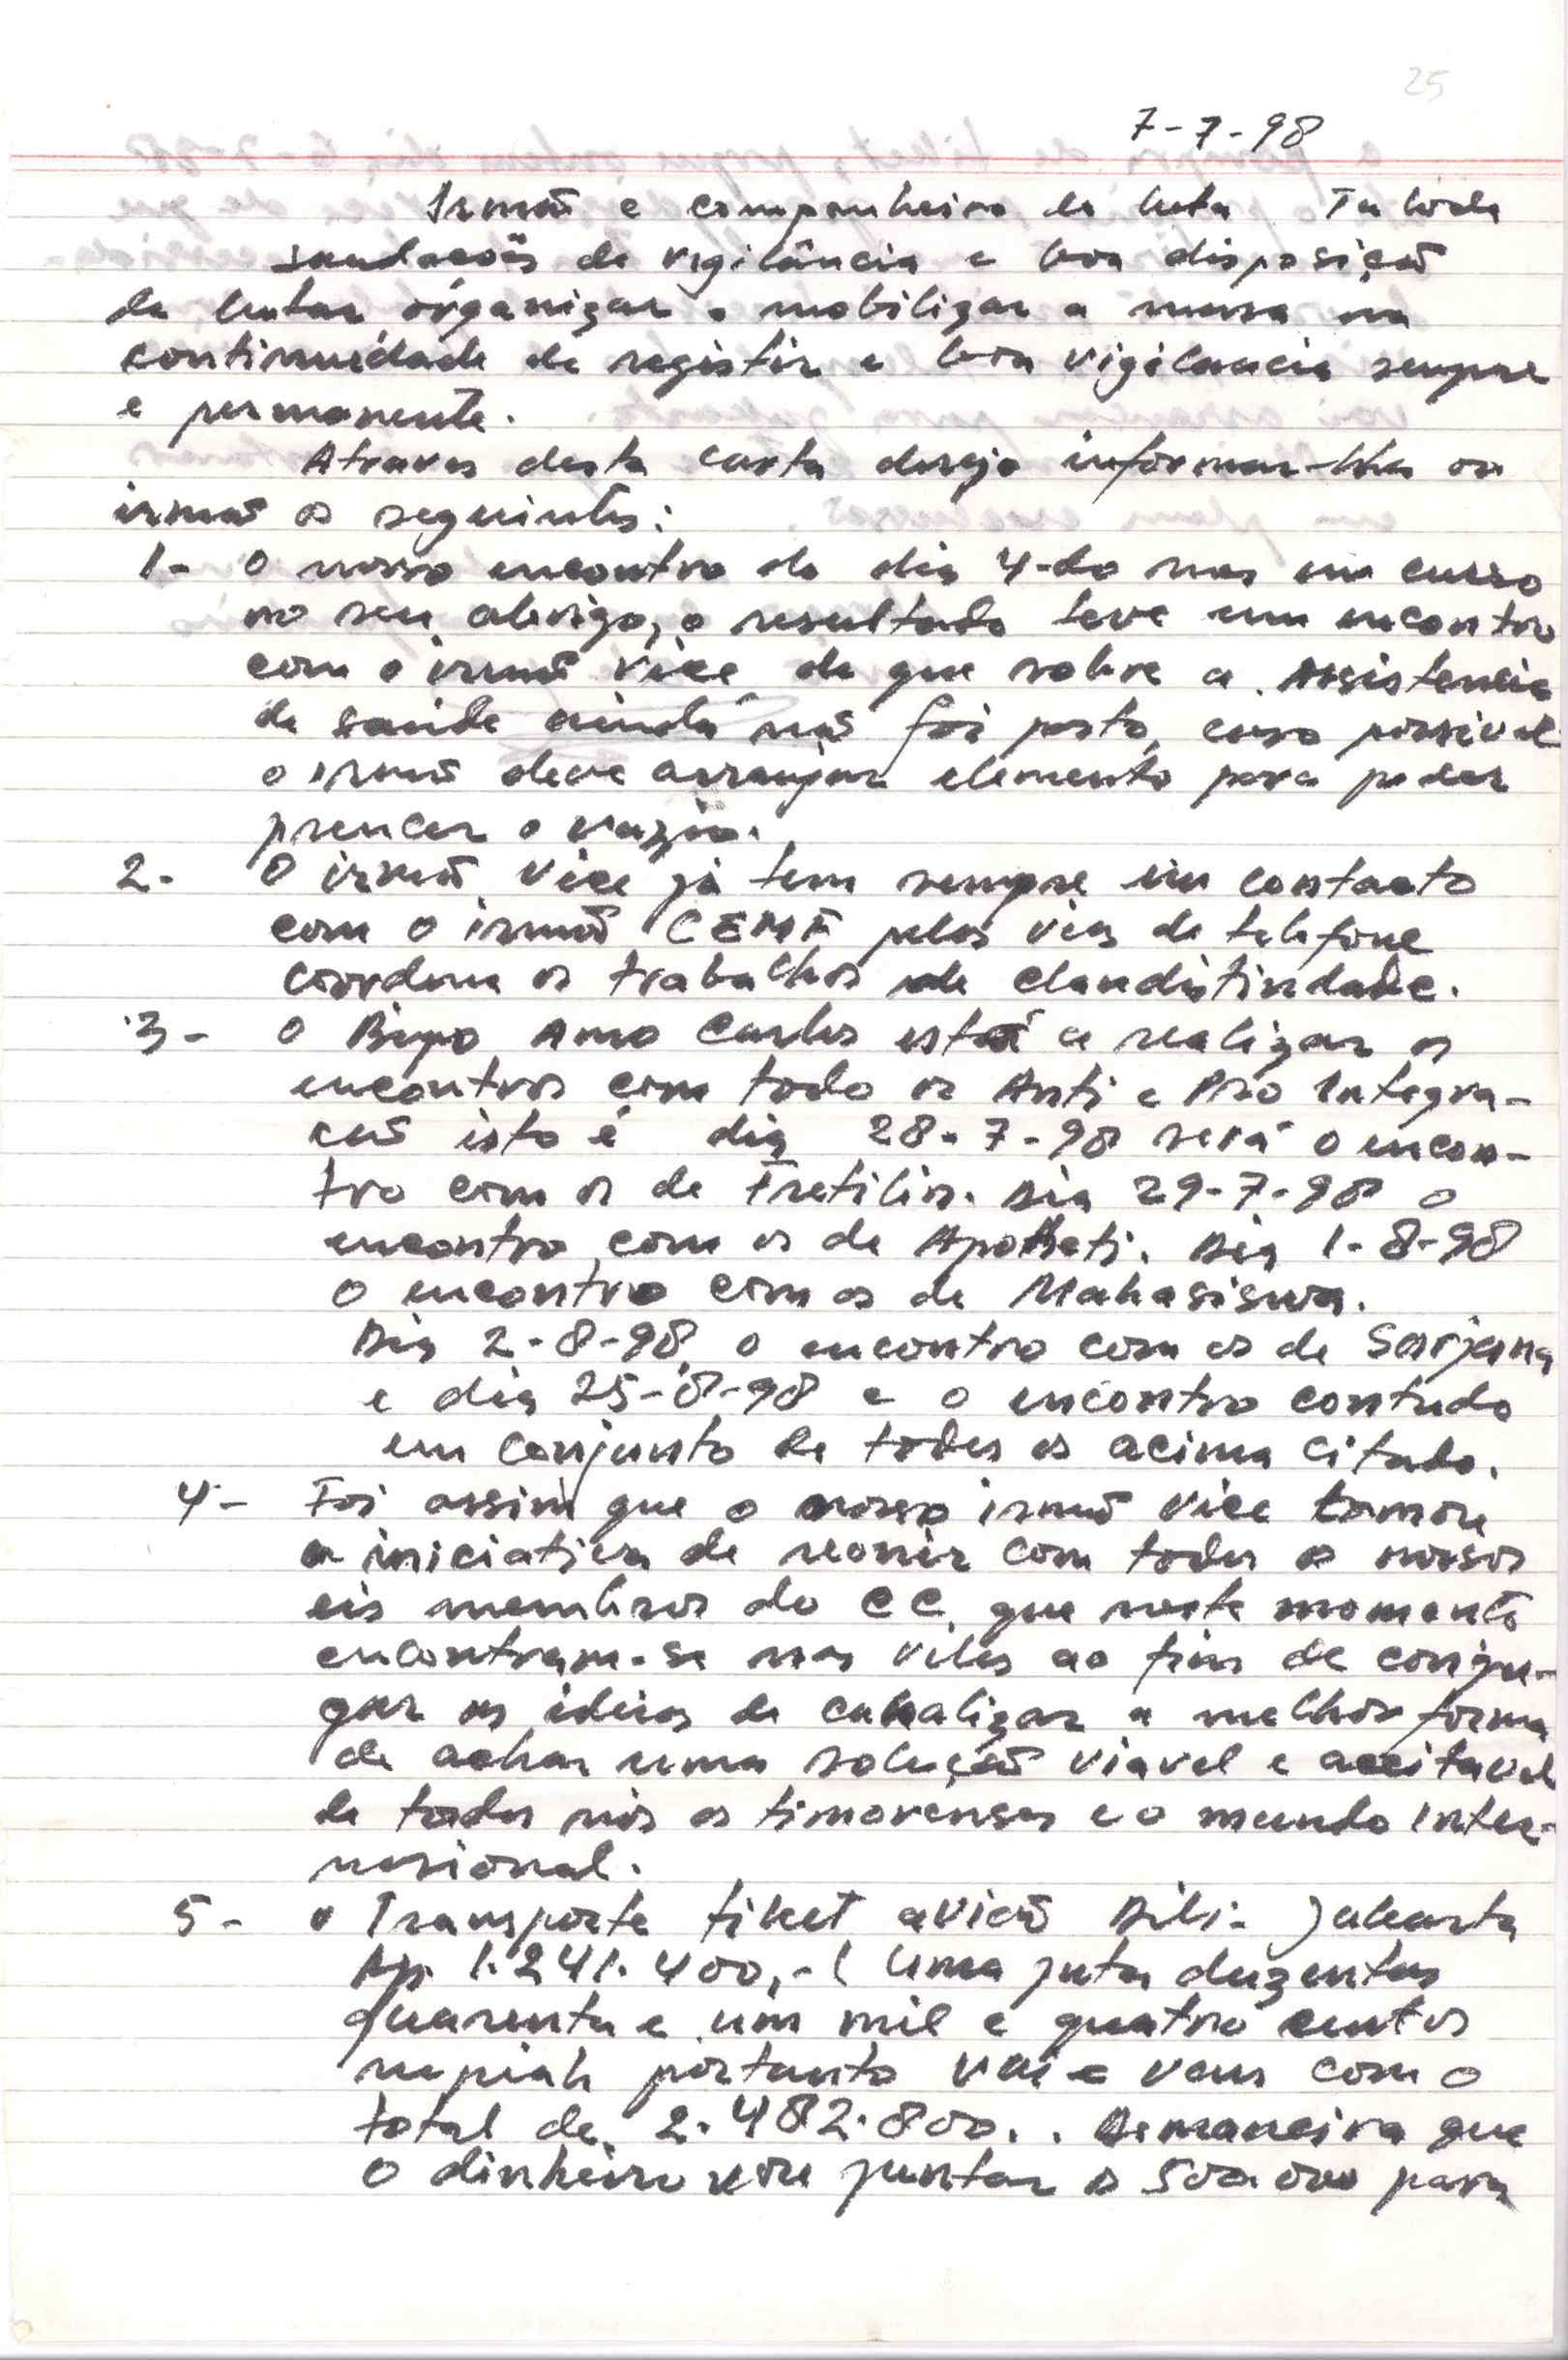 25
7-7-98
Irmão e companheiro de luta
saudações de vigilância e boa disposição
de lutar, organizar e mobilizar a massa na
continuidade de registir e boa vigilancia sempre
e permanente.
Atraves desta carta desejo informar-lhes ao
irmão o seguintes:
1- O nosso encontro do dia 4-do mes em curso
no seu abrigo, o resultado teve um encontro
com o irmão Vice de que sobre a Assistencia
de saúde ainda não foi posto, caso possivel
o irmão deve arranjar elemento para poder
prencer o vazio.
2. O irmão Vice já tem sempre um contacto
com o irmão CEMF pelas vias de telefone
coordena os trabalhos de clandistindade.
3- O Bispo Amo Carlos está a realizar os
encontros com todo os Anti e Pro Integra-
ção isto é dia 28-7-98 será o encon-
tro com os de Fretilin. Dia 29-7-98 o
encontro com os de Apodeti. Dia 1-8-98
o encontro com os de Mahasiswa.
Dia 2-8-98 o encontro com os de Sarjana
e dia 25-8-98 e o encontro contudo
em conjunto de todos os acima citado.
4- Foi assim que o nosso irmão Vice tomou
a iniciativa de reonir com todos os nossos
eis membros do CC, que neste momento
encontram-se nas vilas ao fim de conju-
gar as ideias de canalizar a melhor forma
de achar uma solução viavel e aceitavel
de todos nós os timorenses e o mundo Inter-
nasional.
5- O Transporte tiket avião Dili- Jakarta
Rp. 1.241.400,- (Uma juta duzentos
quarenta e um mil e quatro centos
rupiah portanto vai e vem com o
total de 2.482.800.. Demaneira que
o dinheiro vou juntar os 500.000 para